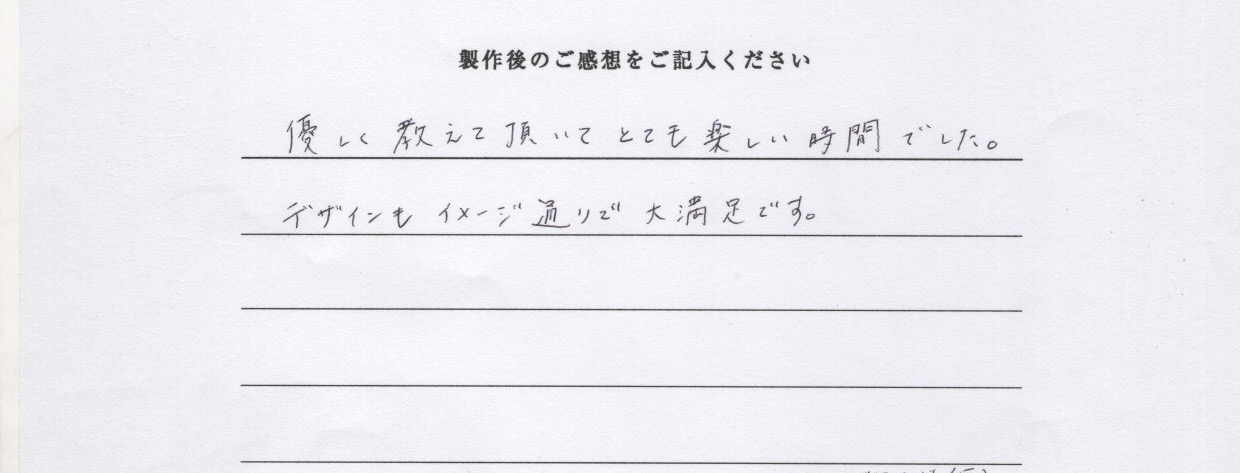 製作後のご感想をご記入ください
優しく教えて頂いてとても楽しい時間でした。
デザインもイメージ通りで大満足です。